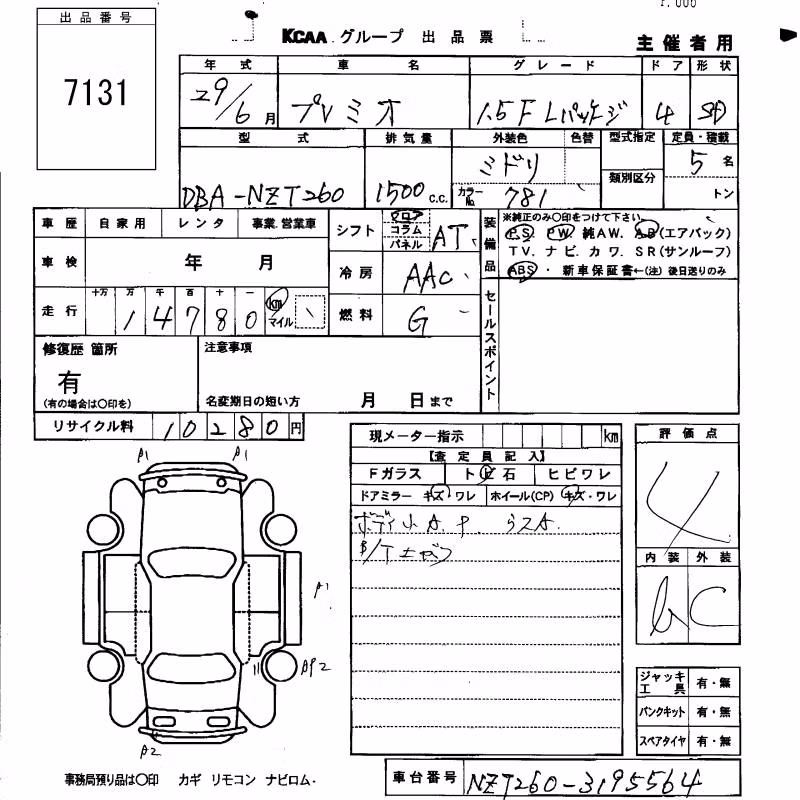 出品番号
7131
KCAA グループ 出品票
主催者用
年式 車名 グレード ドア 形状
29/6月 プレミオ 1.5F Lパッケージ 4 SD
型式 排気量 外装色 色替 型式指定 定員・積載
DBA-NZT260 1500 c.c. ミドリ 類別区分 5名
カラーNo. 781 トン
車歴 自家用 レンタ 事業.営業車 シフト フロア コラム パネル AT
装備品 ※純正のみ〇印をつけて下さい
PS PW 純AW. AB(エアバック)
TV. ナビ. カワ. SR(サンルーフ)
ABS ・ 新車保証書←(注) 後日送りのみ
車検 年 月 冷房 AAC
走行 十万 万 千 百 十 一 km マイル
14780
燃料 G
セールスポイント
修復歴 箇所 注意事項
有
(有の場合は〇印を) 名変期日の短い方 月 日まで
リサイクル料 10280円
現メーター指示 km
【査定員記入】
Fガラス トビ石 ヒビワレ
ドアミラー キズ・ワレ ホイール(CP) キズ・ワレ
ボディ小A.P. ラスA.
評価点
4
内装 外装
B C
β1 β1
A1
AP2
β2
ジャッキ工具 有・無
パンクキット 有・無
スペアタイヤ 有・無
事務局預り品は〇印 カギ リモコン ナビロム・
車台番号 NZT260-3195564